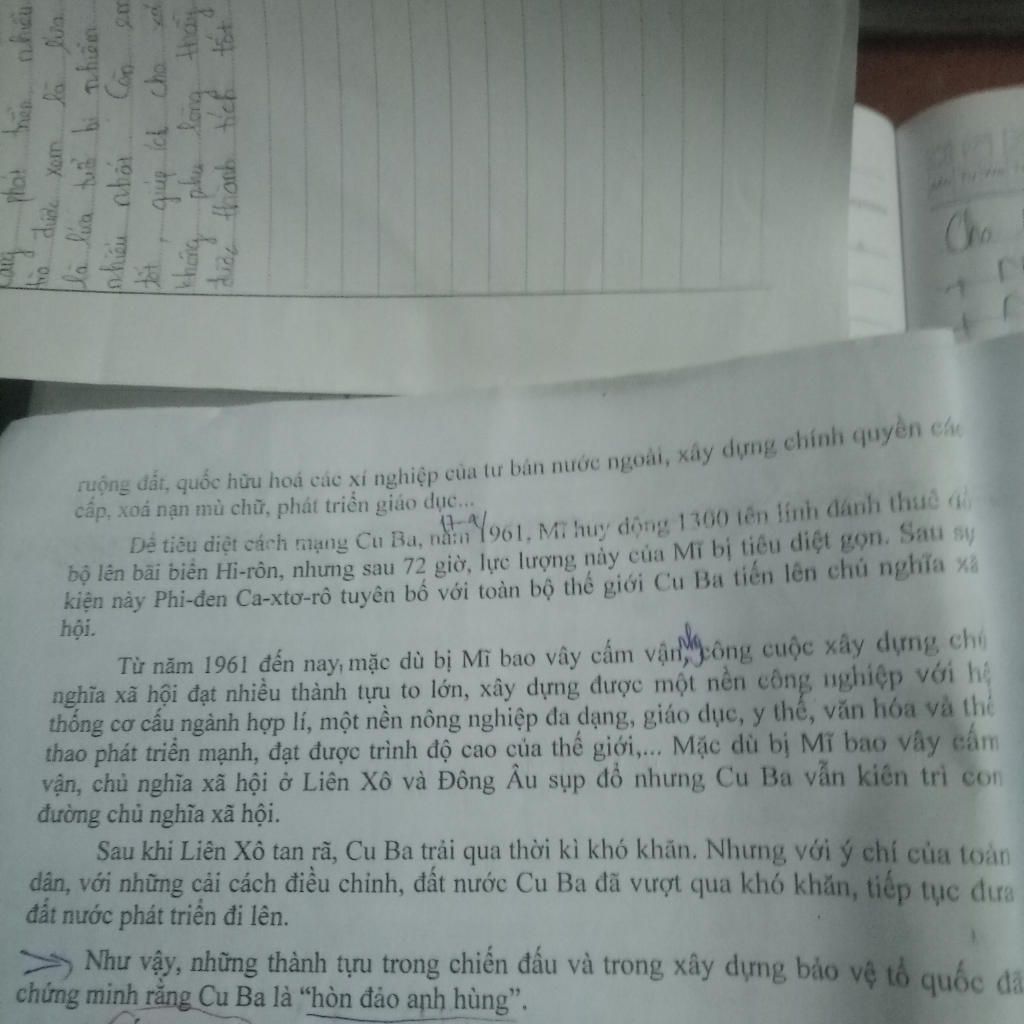 phát triển nhiều
trò được xem là lứa
là lứa tuổi bị nhiễm
nhiều nhất. Còn em
tốt, giúp ích cho xã
không phụ lòng thầy
được thành tích tốt
Cho
ruộng đất, quốc hữu hoá các xí nghiệp của tư bản nước ngoài, xây dựng chính quyền các
cấp, xoá nạn mù chữ, phát triển giáo dục...
17-4/
Để tiêu diệt cách mạng Cu Ba, năm 1961, Mĩ huy động 1300 tên lính đánh thuê đổ
bộ lên bãi biển Hi-rôn, nhưng sau 72 giờ, lực lượng này của Mĩ bị tiêu diệt gọn. Sau sự
kiện này Phi-đen Ca-xtơ-rô tuyên bố với toàn bộ thế giới Cu Ba tiến lên chủ nghĩa xã
hội.
Từ năm 1961 đến nay, mặc dù bị Mĩ bao vây cấm vận, công cuộc xây dựng chủ
nghĩa xã hội đạt nhiều thành tựu to lớn, xây dựng được một nền công nghiệp với hệ
thống cơ cấu ngành hợp lí, một nền nông nghiệp đa dạng, giáo dục, y thế, văn hóa và thể
thao phát triển mạnh, đạt được trình độ cao của thế giới,... Mặc dù bị Mĩ bao vây cấm
vận, chủ nghĩa xã hội ở Liên Xô và Đông Âu sụp đổ nhưng Cu Ba vẫn kiên trì con
đường chủ nghĩa xã hội.
Sau khi Liên Xô tan rã, Cu Ba trải qua thời kì khó khăn. Nhưng với ý chí của toàn
dân, với những cải cách điều chỉnh, đất nước Cu Ba đã vượt qua khó khăn, tiếp tục đưa
đất nước phát triển đi lên.
Như vậy, những thành tựu trong chiến đấu và trong xây dựng bảo vệ tổ quốc đã
chứng minh rằng Cu Ba là “hòn đảo anh hùng”.